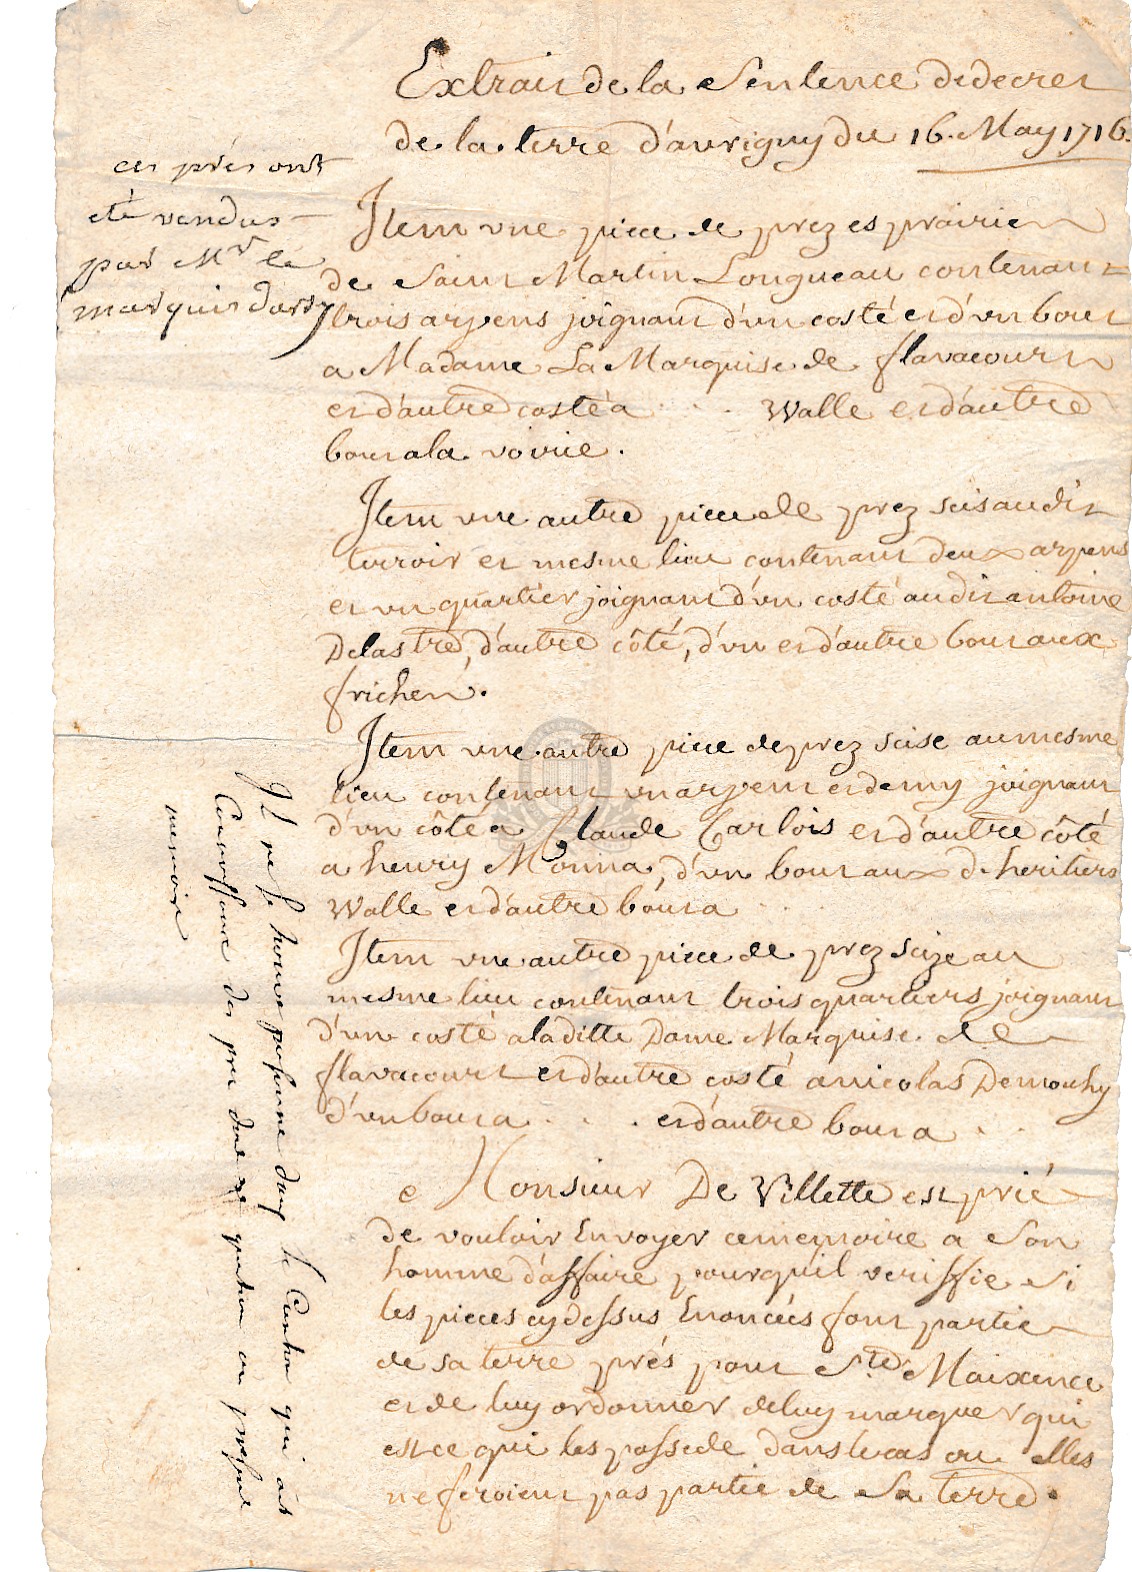 Extrait de la Sentence de decret
de la terre d'avrigny du 16. May 1716.
ces prés ont
eté vendus
par Mr. le
marquis darsy
Item une piece de prez es prairies
de Saint Martin Longueau contenant
trois arpens joignant d'un costé et d'un bout
a Madame La Marquise de flavacourt
et d'autre costé a . . . Walle et d'autre
bout a la voirie.
Item une autre piece de prez seis audit
terroir et mesme lieu contenant deux arpens
et un quartier joignant d'un costé audit antoine
Delastre, d'autre côté, d'un et d'autre bout aux
friches.
Item une autre piece de prez scise au mesme
lieu contenant un arpent et demy joignant
d'un côté a Claude Carlois et d'autre côté
a henry Monna, d'un bout aux d. heritiers
Walle et d'autre bout a . . .
Item une autre piece de prez seize au
mesme lieu contenant trois quartiers joignant
d'un costé a laditte Dame Marquise de
flavacourt et d'autre costé a nicolas Demouhy
d'un bout a . . . et d'autre bout a . . .
Monsieur De Villette est prié
de vouloir Envoyer ce memoire a Son
homme d'affaire pour qu'il veriffie Si
les pieces cy dessus Enoncées font partie
de sa terre prés pont Ste. Maixence
et de luy ordonner de luy marquer qui
est ce qui les possede dans le cas ou elles
ne feroient pas partie de Sa terre.
Il ne se trouve personne dans le Canton qui ait
Connoissance des prez dont est question au present
memoire